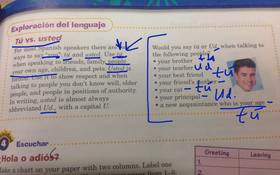 Exploración del lenguaje
Tú vs. usted
For most Spanish speakers there are
ways to say "you": tú and usted. Use tú
when speaking to friends, family, people
your own age, children, and pets. Usted is
to show respect and when
talking to people you don't know well, older
people, and people in positions of authority.
In writing, usted is almost always
abbreviated Ud., with a capital U.
Would you say tú or Ud. when talking to
the following people?
• your brother tú
• your teacher Ud.
• your best friend tú
• your friend's
• your cat - tú
• your principal - Ud.
• a new acquaintance who is your age -
tú
4 Escuchar
¿Hola o adiós?
Make a chart on your paper with two columns. Label one
Greeting Leaving
1.
2